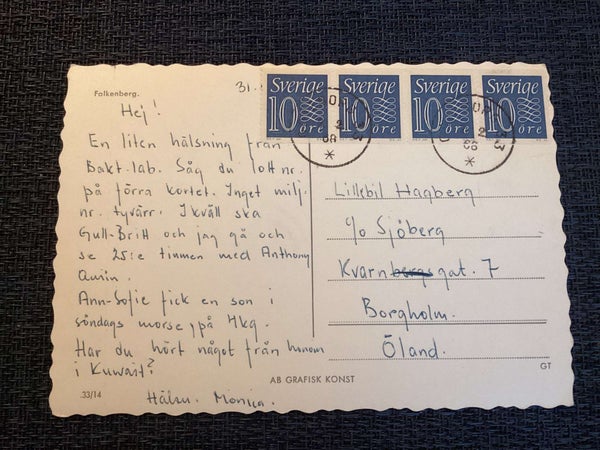 Falkenberg.
31.
Hej!
En liten hälsning från
Bakt.lab. Såg du lott nr.
på förra kortet. Inget milj.
nr. tyvärr. Ikväll ska
Gull-Britt och jag gå och
se 25:e timmen med Anthony
Quin.
Ann-Sofie fick en son i
söndags morse, på Hkg.
Har du hört något från honom
i Kuwait?
Hälsn. Monica.
33/14
AB GRAFISK KONST
Sverige
10 öre
Sverige
10 öre
Sverige
10 öre
Sverige
10 öre
Lillebil Hagberg
c/o Sjöberg
Kvarnbergsgat. 7
Borgholm.
Öland.
GT